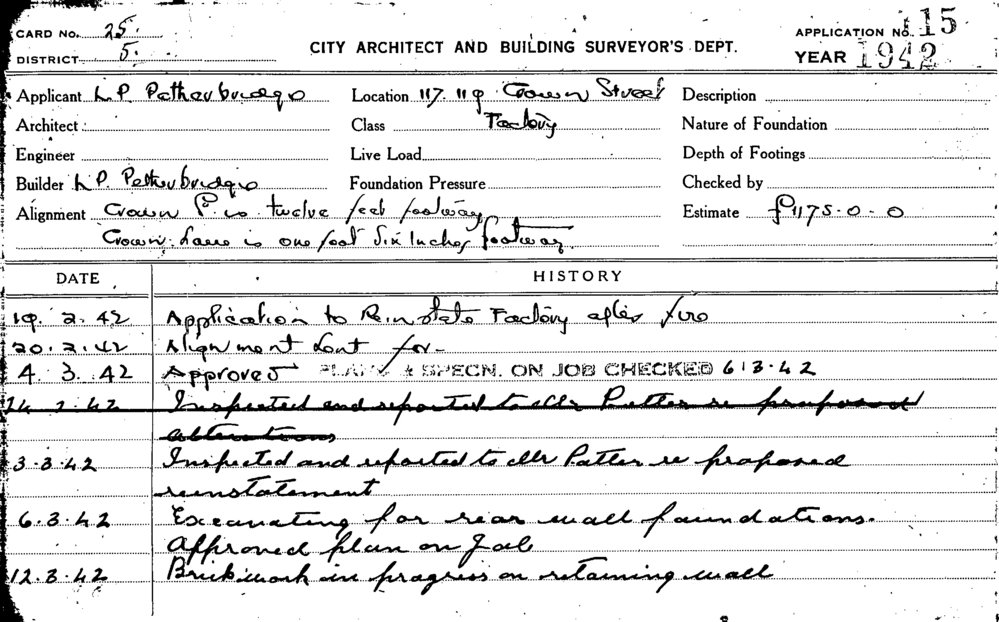 CARD No. 25.
DISTRICT 5.
CITY ARCHITECT AND BUILDING SURVEYOR'S DEPT.
APPLICATION No. 115
YEAR 1942
Applicant L.P. Petherbridge Location 117.119 Crown Street Description
Architect Class Factory Nature of Foundation
Engineer Live Load Depth of Footings
Builder L.P. Petherbridge Foundation Pressure Checked by
Alignment Crown St. is twelve feet footway Estimate £1175-0-0
Crown Lane is one foot six inches footway
DATE HISTORY
19.2.42 Application to Reinstate Factory after fire
20.2.42 Alignment sent for-
4.3.42 Approved PLANS & SPECN. ON JOB CHECKED 6.3.42
Inspected and reported to Mr Patter re proposed
alterations
3.3.42 Inspected and reported to Mr Patter re proposed
reinstatement
6.3.42 Excavating for rear wall foundations.
Approved plan on Job
12.3.42 Brickwork in progress on retaining wall